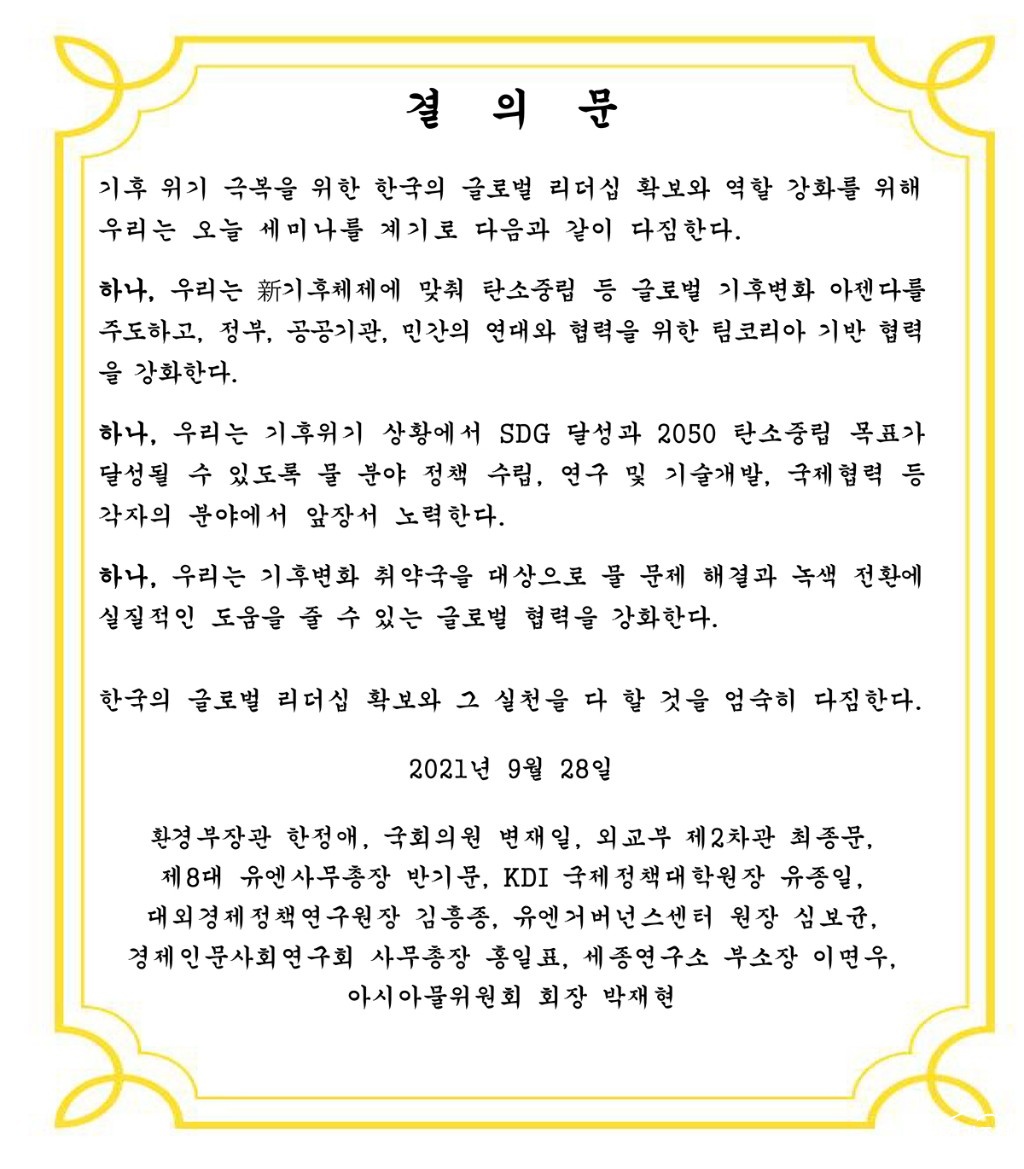 결 의 문
기후 위기 극복을 위한 한국의 글로벌 리더십 확보와 역할 강화를 위해
우리는 오늘 세미나를 계기로 다음과 같이 다짐한다.
하나, 우리는 新기후체제에 맞춰 탄소중립 등 글로벌 기후변화 아젠다를
주도하고, 정부, 공공기관, 민간의 연대와 협력을 위한 팀코리아 기반 협력
을 강화한다.
하나, 우리는 기후위기 상황에서 SDG 달성과 2050 탄소중립 목표가
달성될 수 있도록 물 분야 정책 수립, 연구 및 기술개발, 국제협력 등
각자의 분야에서 앞장서 노력한다.
하나, 우리는 기후변화 취약국을 대상으로 물 문제 해결과 녹색 전환에
실질적인 도움을 줄 수 있는 글로벌 협력을 강화한다.
한국의 글로벌 리더십 확보와 그 실천을 다 할 것을 엄숙히 다짐한다.
2021년 9월 28일
환경부장관 한정애, 국회의원 변재일, 외교부 제2차관 최종문,
제8대 유엔사무총장 반기문, KDI 국제정책대학원장 유종일,
대외경제정책연구원장 김흥종, 유엔거버넌스센터 원장 심보균,
경제인문사회연구회 사무총장 홍일표, 세종연구소 부소장 이면우,
아시아물위원회 회장 박재현